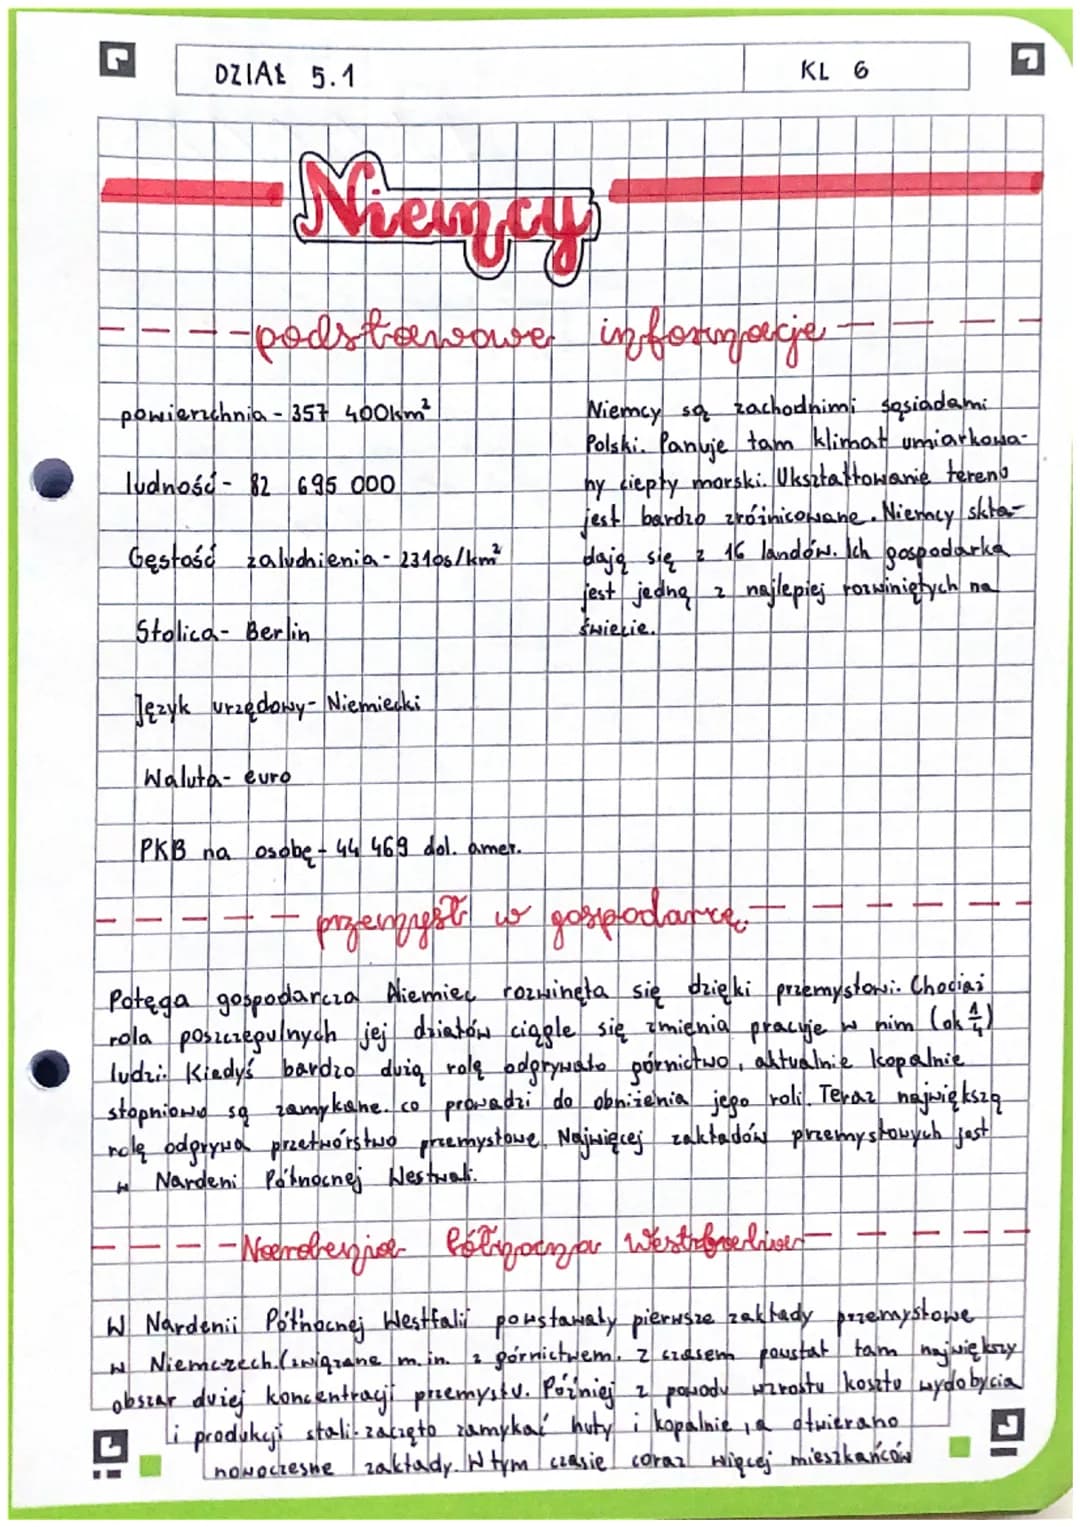 DZIAŁ 5.1
KL 6
Niemcy
podstawowe informacje
powierzchnia - 357 400km²
ludność - 82 695 000
Gęstość zaludnienia - 231os/km²
Stolica - Berlin
Język urzędowy - Niemiecki
Waluta - euro
PKB na osobę - 44 469 dol. amer.
Niemcy są zachodnimi sąsiadami
Polski. Panuje tam klimat umiarkowa-
ny ciepły morski. Ukształtowanie tereno
jest bardzo zróżnicowane. Niemcy skła-
dają się z 16 landów. Ich gospodarka
jest jedną z najlepiej rozwiniętych na
świecie.
przemysł w gospodarce.
Potęga gospodarcza Niemiec rozwinęła się dzięki przemysłowi. Chociaż
rola poszczegulnych jej działów ciągle się zmienia pracuje w nim (ok ¼)
ludzi. Kiedyś bardzo dużą rolę odgrywało górnictwo, aktualnie kopalnie
stopniowo są zamykane. co prowadzi do obniżenia jego roli. Teraz największą
rolę odgrywa przetwórstwo przemysłowe. Najwięcej zakładów przemysłowych jest
w Nardeni Północnej Westwali.
Nardenia Północna Westfalia
W Nardenii Północnej Westfalii powstawały pierwsze zakłady przemysłowe
w Niemczech. (związane m.in. z górnictwem. z czasem powstał tam największy
obszar dużej koncentracji przemysłu. Później z powodu wzrostu kosztu wydobycia
i produkcji stali - zaczęto zamykać huty i kopalnie, a otwierano
nowoczesne zakłady. W tym czasie coraz więcej mieszkańców